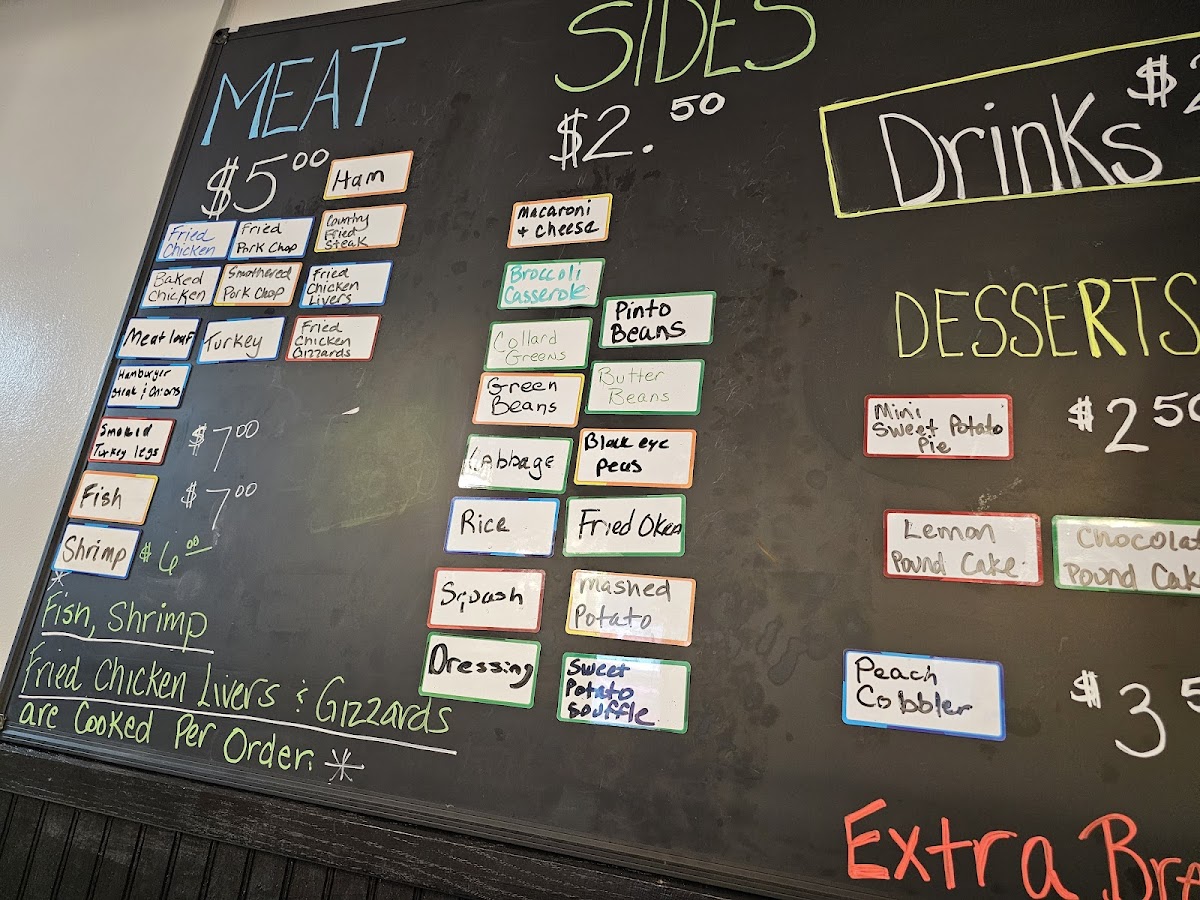 MEAT
$5.00
Ham
Fried
Chicken
Fried
Pork Chop
Country
Fried
Steak
Baked
Chicken
Smothered
Pork Chop
Fried
Chicken
Livers
Meatloaf
Turkey
Fried
Chicken
Gizzards
Hamburger
Steak & Onions
Smoked
Turkey legs
$7.00
Fish
$7.00
Shrimp
$6.00
*
Fish, Shrimp
Fried Chicken Livers & Gizzards
are Cooked Per Order. *
SIDES
$2.50
Macaroni
+ cheese
Broccoli
Casserole
Pinto
Beans
Collard
Greens
Butter
Beans
Green
Beans
Black eye
peas
Cabbage
Rice
Fried Okra
Squash
Mashed
Potato
Dressing
Sweet
Potato
Souffle
Drinks
$2
DESSERTS
Mini
Sweet Potato
Pie
$2.50
Lemon
Pound Cake
Chocolat
Pound Cak
Peach
Cobbler
$3.5
Extra Bre